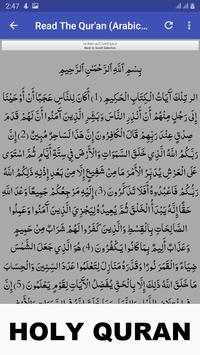 2:47
Read The Qur'an (Arabic...
Back to Surah Selection
بِسْمِ اللَّهِ الرَّحْمَنِ الرَّحِيمِ
الر تِلْكَ آيَاتُ الْكِتَابِ الْحَكِيمِ (1) أَكَانَ لِلنَّاسِ عَجَبًا أَنْ أَوْحَيْنَا
إِلَى رَجُلٍ مِنْهُمْ أَنْ أَنْذِرِ النَّاسَ وَبَشِّرِ الَّذِينَ آمَنُوا أَنَّ لَهُمْ قَدَمَ
صِدْقٍ عِنْدَ رَبِّهِمْ قَالَ الْكَافِرُونَ إِنَّ هَذَا لَسَاحِرٌ مُبِينٌ (2) إِنَّ
رَبَّكُمُ اللَّهُ الَّذِي خَلَقَ السَّمَوَاتِ وَالْأَرْضَ فِي سِتَّةِ أَيَّامٍ ثُمَّ اسْتَوَى
عَلَى الْعَرْشِ يُدَبِّرُ الْأَمْرَ مَا مِنْ شَفِيعٍ إِلَّا مِنْ بَعْدِ إِذْنِهِ ذَلِكُمُ
اللَّهُ رَبُّكُمْ فَاعْبُدُوهُ أَفَلَا تَذَكَّرُونَ (3) إِلَيْهِ مَرْجِعُكُمْ جَمِيعًا وَعْدَ اللَّهِ
حَقًّا إِنَّهُ يَبْدَأُ الْخَلْقَ ثُمَّ يُعِيدُهُ لِيَجْزِيَ الَّذِينَ آمَنُوا وَعَمِلُوا
الصَّالِحَاتِ بِالْقِسْطِ وَالَّذِينَ كَفَرُوا لَهُمْ شَرَابٌ مِنْ حَمِيمٍ
وَعَذَابٌ أَلِيمٌ بِمَا كَانُوا يَكْفُرُونَ (4) هُوَ الَّذِي جَعَلَ الشَّمْسَ
ضِيَاءً وَالْقَمَرَ نُورًا وَقَدَّرَهُ مَنَازِلَ لِتَعْلَمُوا عَدَدَ السِّنِينَ وَالْحِسَابَ
مَا خَلَقَ اللَّهُ ذَلِكَ إِلَّا بِالْحَقِّ يُفَصِّلُ الْآيَاتِ لِقَوْمٍ يَعْلَمُونَ (5)
HOLY QURAN